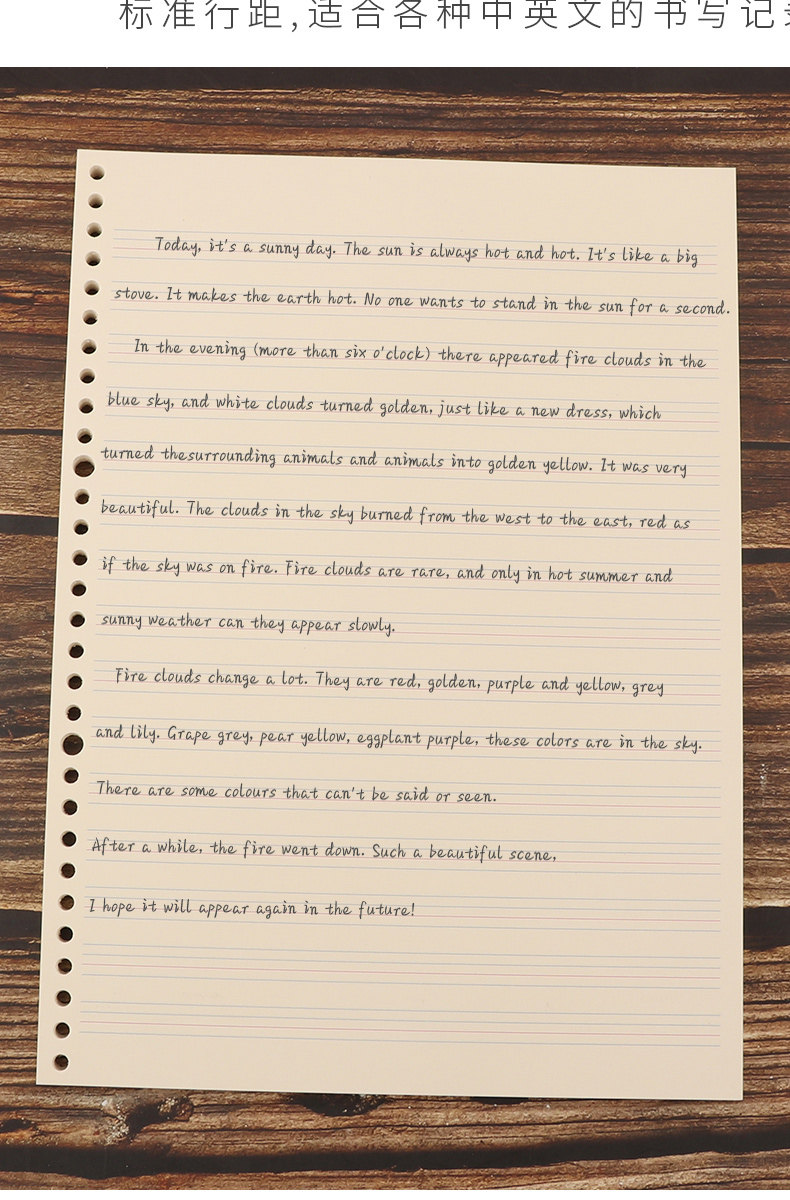 标准行距,适合各种中英文的书写记录
Today, it's a sunny day. The sun is always hot and hot. It's like a big
stove. It makes the earth hot. No one wants to stand in the sun for a second.
In the evening (more than six o'clock) there appeared fire clouds in the
blue sky, and white clouds turned golden, just like a new dress, which
turned thesurrounding animals and animals into golden yellow. It was very
beautiful. The clouds in the sky burned from the west to the east, red as
if the sky was on fire. Fire clouds are rare, and only in hot summer and
sunny weather can they appear slowly.
Fire clouds change a lot. They are red, golden, purple and yellow, grey
and lily. Grape grey, pear yellow, eggplant purple, these colors are in the sky.
There are some colours that can't be said or seen.
After a while, the fire went down. Such a beautiful scene,
I hope it will appear again in the future!